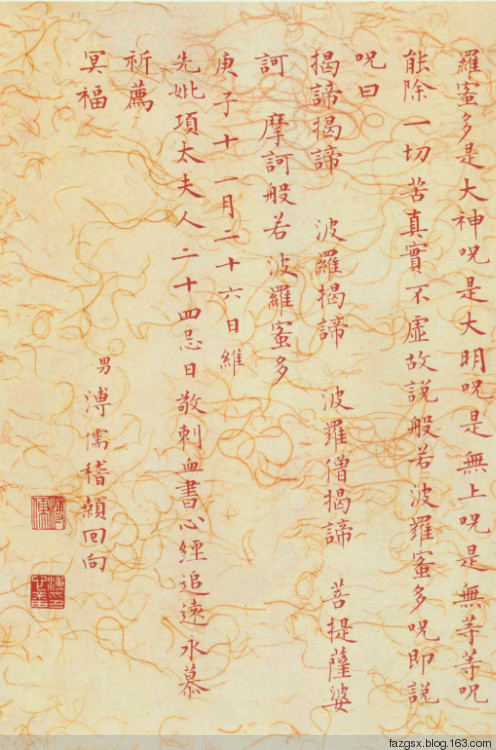 羅蜜多是大神呪是大明呪是無上呪是無等等呪
能除一切苦真實不虛故說般若波羅蜜多呪即說
呪曰
揭諦揭諦 波羅揭諦 波羅僧揭諦 菩提薩婆
訶 摩訶般若波羅蜜多
庚子十一月二十六日維
先妣項太夫人二十四忌日敬刺血書心經追遠永慕
祈薦
冥福
男 溥儒稽顙回向
fazgsx.blog.163.com